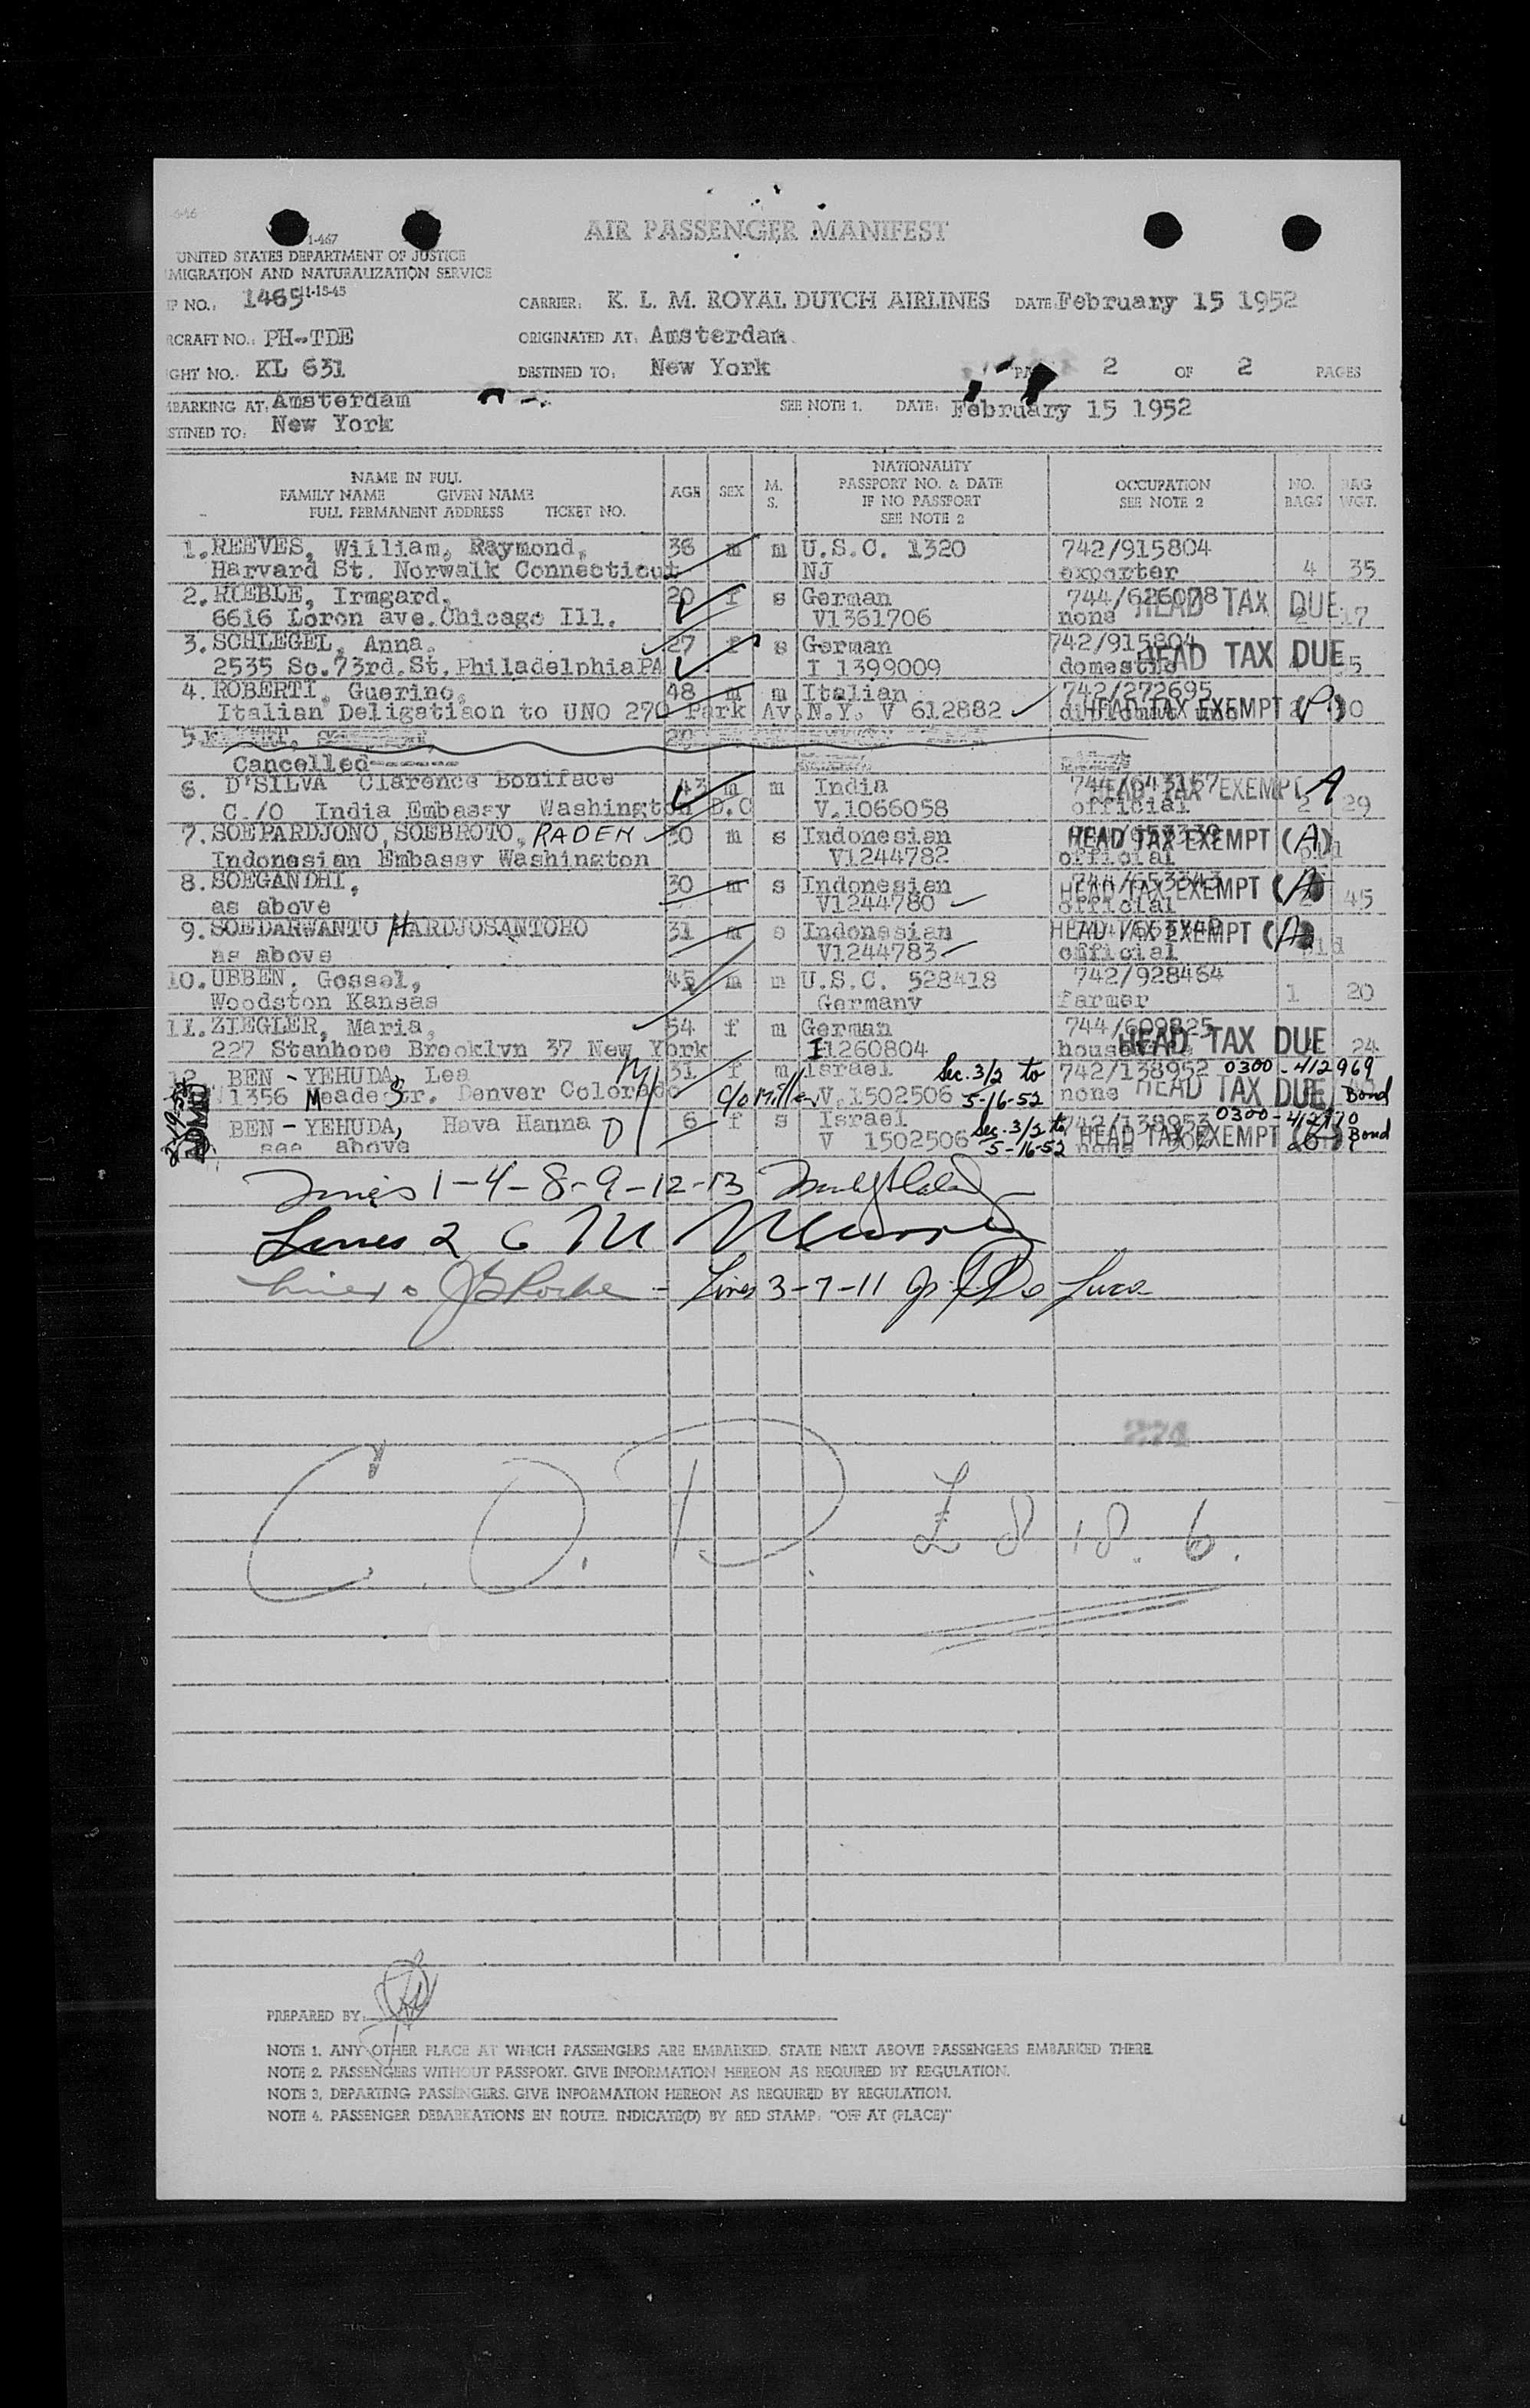 AIR PASSENGER MANIFEST
1-467
UNITED STATES DEPARTMENT OF JUSTICE
MIGRATION AND NATURALIZATION SERVICE
11-15-45
IP NO.: 1465 CARRIER: K. L. M. ROYAL DUTCH AIRLINES DATE: February 15 1952
RCRAFT NO.: PH-TDE ORIGINATED AT: Amsterdam
GHT NO. KL 631 DESTINED TO: New York 2 OF 2 PAGES
MBARKING AT: Amsterdam SEE NOTE 1. DATE: February 15 1952
STINED TO: New York
NAME IN FULL
FAMILY NAME GIVEN NAME
FULL PERMANENT ADDRESS TICKET NO.
AGE SEX M. S.
NATIONALITY
PASSPORT NO. & DATE
IF NO PASSPORT
SEE NOTE 2
OCCUPATION
SEE NOTE 2
NO. BAGS
BAG WGT.
1. REEVES, William, Raymond, 36 m m U.S.C. 1320 742/915804
Harvard St. Norwalk Connecticut NJ exporter 4 35
2. HIEBLE, Irmgard, 20 f s German 744/626078 HEAD TAX DUE
6616 Loron ave. Chicago Ill. V1361706 none 17
3. SCHLEGEL, Anna, 27 f s German 742/915804 HEAD TAX DUE
2535 So. 73rd. St. Philadelphia PA I 1399009 domestic
4. ROBERTI, Guerino, 48 m m Italian 742/272695
Italian Deligatiaon to UNO 270 Park Av. N.Y. V 612882 HEAD TAX EXEMPT
5.
Cancelled------
6. D'SILVA Clarence Boniface 43 m m India HEAD TAX EXEMPT A
C./O India Embassy Washington D.C V.1066058 official 2 29
7. SOEPARDJONO, SOEBROTO, RADEN 30 m s Indonesian HEAD TAX EXEMPT (A)
Indonesian Embassy Washington V1244782 official
8. SOEGANDHI, 30 m s Indonesian HEAD TAX EXEMPT
as above V1244780 official 45
9. SOEDARWANTO HARDJOSANTOHO 31 m s Indonesian HEAD TAX EXEMPT (A)
as above V1244783 official
10. UBBEN, Gossel, 45 m m U.S.C. 528418 742/928464
Woodston Kansas Germany farmer 1 20
11. ZIEGLER, Maria, 54 f m German 744/609825 HEAD TAX DUE
227 Stanhope Brooklyn 37 New York I1260804 24
12 BEN - YEHUDA, Lea M 31 f m Israel Sec. 3/2 to 742/138952 0300-412969
1356 Meade Str. Denver Colorado c/o Miller V.1502506 5-16-52 none HEAD TAX DUE Bond
BEN - YEHUDA, Hava Hanna D 6 f s Israel Sec. 3/2 to 742/138953 0300-412970
see above V 1502506 5-16-52 none HEAD TAX EXEMPT Bond
ADMD
1-4-8-9-12-13
Lines 2 6 M
Lines 3-7-11
274
C. O. D. £ 8 18. 6.
PREPARED BY:
NOTE 1. ANY OTHER PLACE AT WHICH PASSENGERS ARE EMBARKED. STATE NEXT ABOVE PASSENGERS EMBARKED THERE.
NOTE 2. PASSENGERS WITHOUT PASSPORT. GIVE INFORMATION HEREON AS REQUIRED BY REGULATION.
NOTE 3. DEPARTING PASSENGERS. GIVE INFORMATION HEREON AS REQUIRED BY REGULATION.
NOTE 4. PASSENGER DEBARKATIONS EN ROUTE. INDICATE(D) BY RED STAMP: "OFF AT (PLACE)"